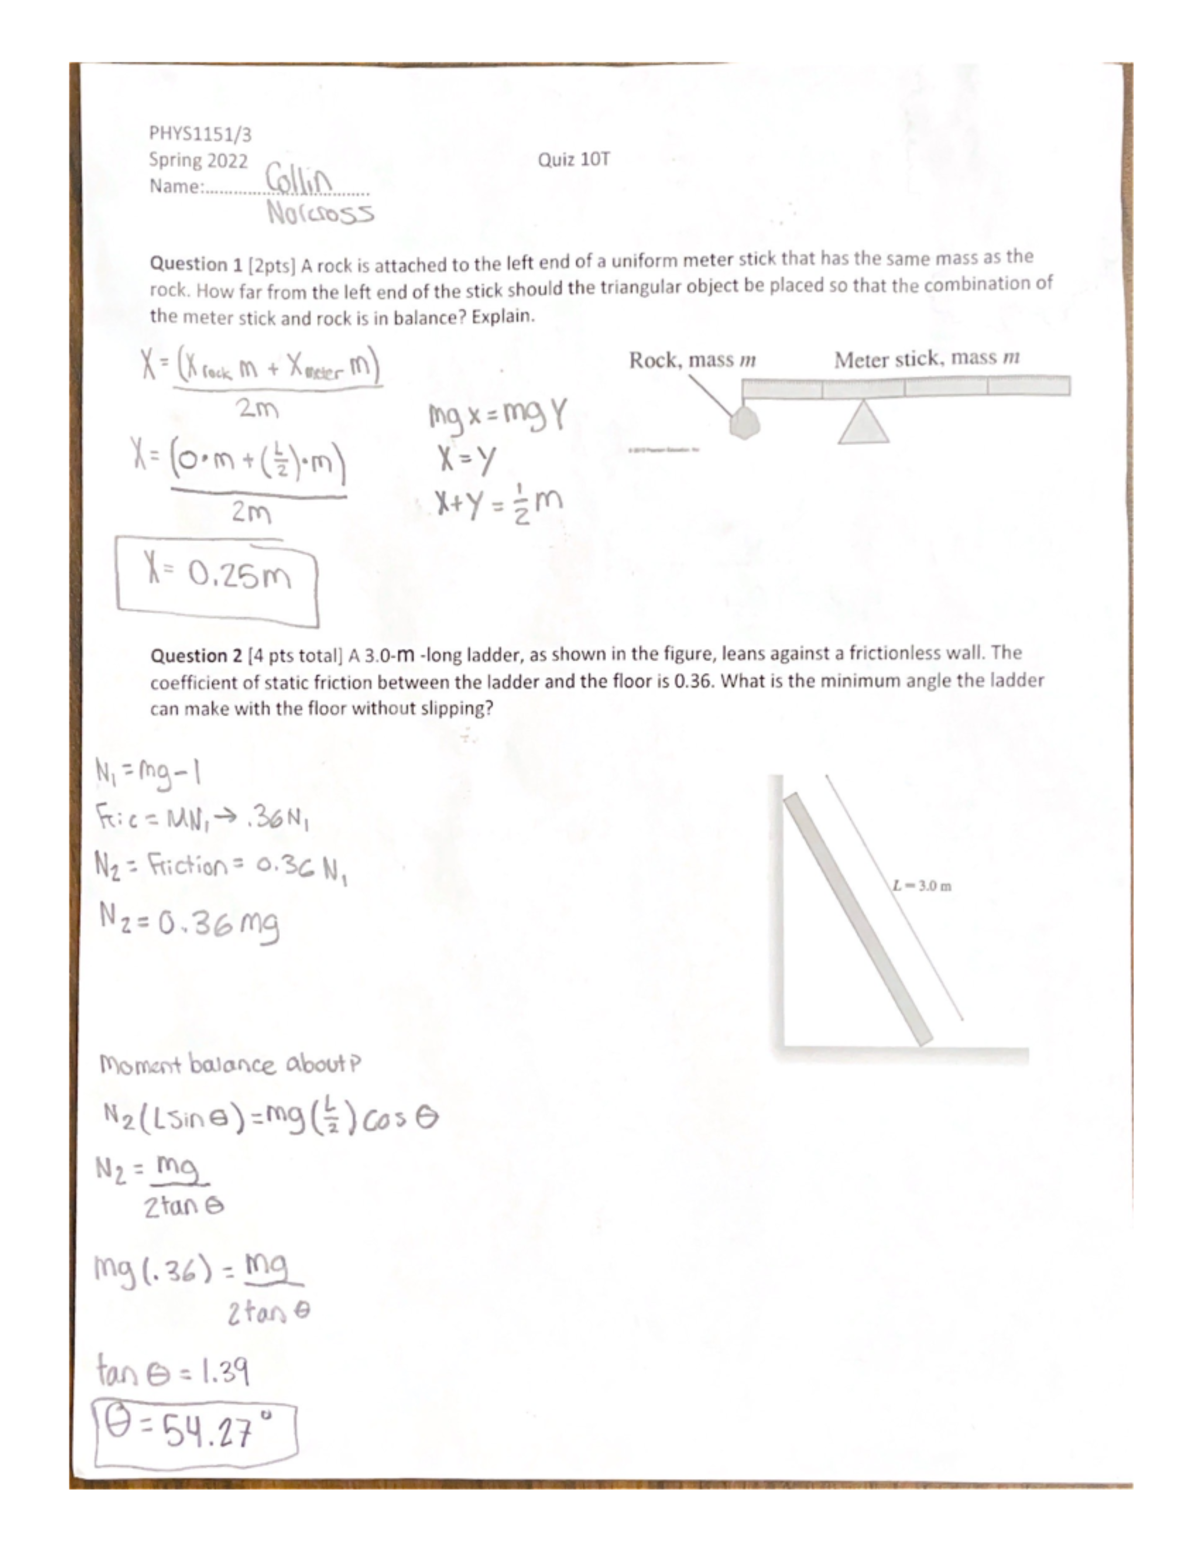 PHYS1151/3
Spring 2022
Quiz 10T
Name:..............Collin.......
Norcross
Question 1 [2pts] A rock is attached to the left end of a uniform meter stick that has the same mass as the
rock. How far from the left end of the stick should the triangular object be placed so that the combination of
the meter stick and rock is in balance? Explain.
X = (X rock m + X meter m)
2m
X = (0·m + (L/2)·m)
2m
X = 0.25m
mg x = mg Y
X = Y
X+Y = 1/2 m
Rock, mass m
Meter stick, mass m
Question 2 [4 pts total] A 3.0-m -long ladder, as shown in the figure, leans against a frictionless wall. The
coefficient of static friction between the ladder and the floor is 0.36. What is the minimum angle the ladder
can make with the floor without slipping?
N₁ = mg - 1
Fric = MN₁ → .36N₁
N₂ = Friction = 0.36 N₁
N₂ = 0.36 mg
L = 3.0 m
Moment balance about P
N₂(L sin θ) = mg(L/2) cos θ
N₂ = mg
2tan θ
mg(.36) = mg
2tan θ
tan θ = 1.39
θ = 54.27°